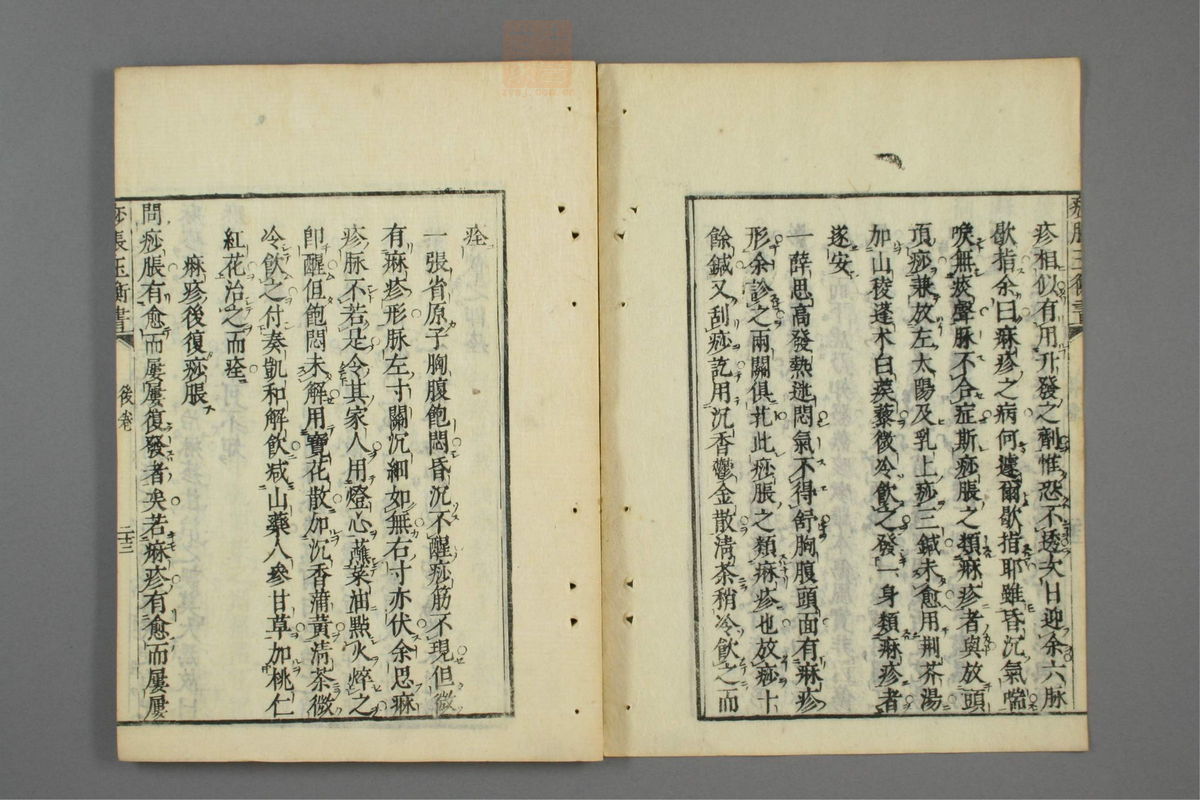 疹相似有用升發之劑惟恐不透次日迎余六脉
歇指余曰痳疹之病何遽爾歇指耶雖昏沉氣喘
唳無痰聲脉不合症斯痧脹之類痳疹者與放頭
頂痧兼放左太陽及乳上痧三鍼未愈用荆芥湯
加山稜蓬术白蒺藜微冷飲之發一身類痳疹者
遂安
一薛思高發熱迷悶氣不得舒胸腹頭面有痳疹
形余診之兩關俱芤此痧脹之類痳疹也放痧十
餘鍼又刮痧訖用沉香鬱金散淸茶稍冷飲之而
痊
一張省原子胸腹飽悶昏沉不醒痧筋不現但微
有痳疹形脉左寸關沉細如無右寸亦伏余思痳
疹脉不若是令其家人用燈心蘸菜油㸃火焠之
卽醒但飽悶未解用寶花散加沉香蒲黃淸茶微
冷飲之付奏凱和解飲减山藥人參甘草加桃仁
紅花治之而痊
痳疹後復痧脹
問痧脹有愈而屢屢復發者矣若痳疹有愈而屢屢
痧脹玉衡書
後卷
二十三